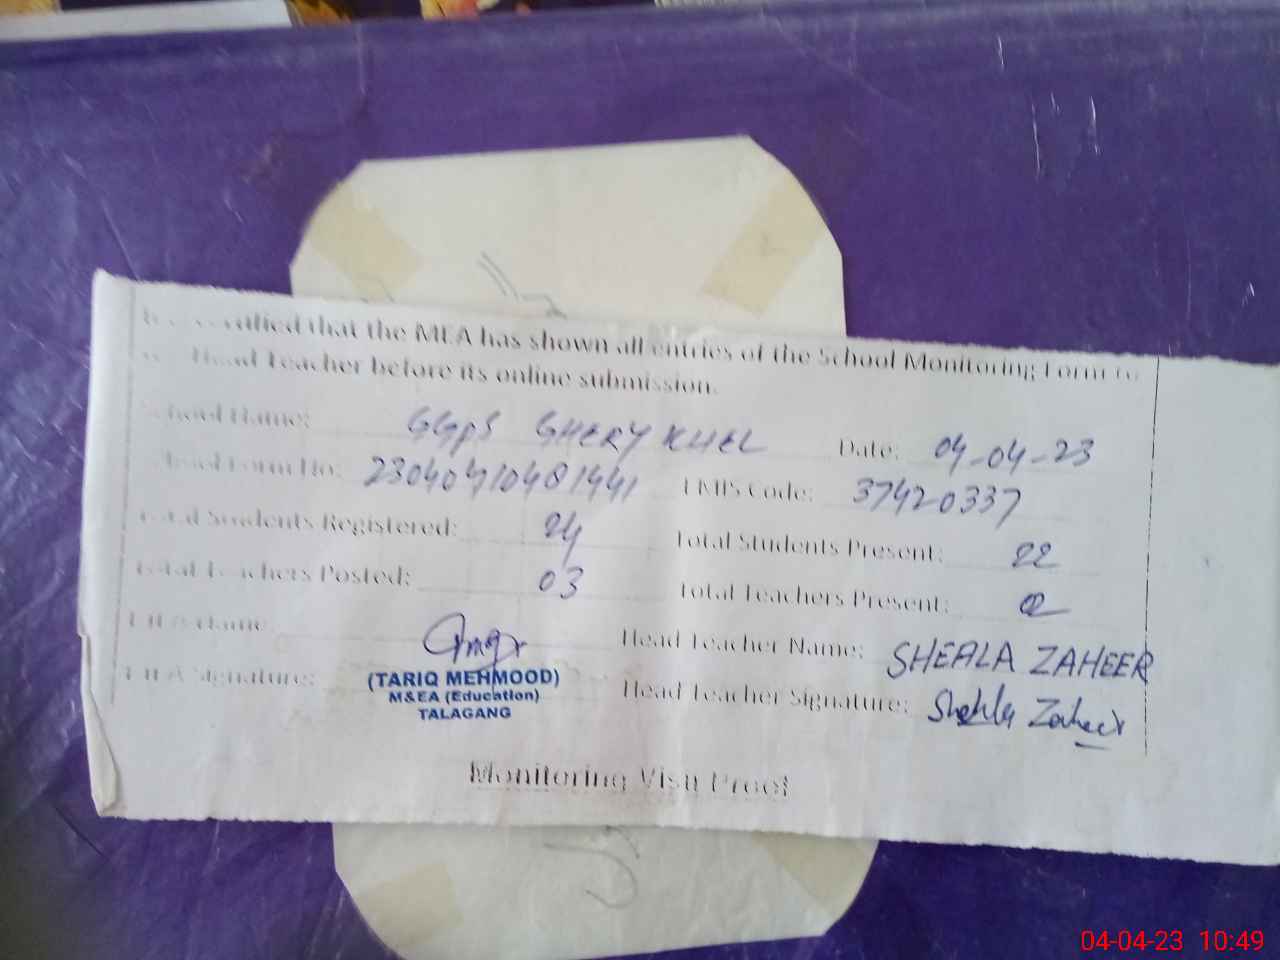 certified that the MEA has shown all entries of the School Monitoring Form to
Head Teacher before its online submission.
School Name: GGPS GHERY KHEL Date: 04-04-23
School Form No: 23040410481441 EMIS Code: 37420337
Total Students Registered: 24 Total Students Present: 22
Total Teachers Posted: 03 Total Teachers Present: 02
MEA Name Head Teacher Name: SHEALA ZAHEER
MEA Signature: (TARIQ MEHMOOD) Head Teacher Signature: Shehla Zaheer
M&EA (Education)
TALAGANG
Monitoring Visit Proof
04-04-23 10:49